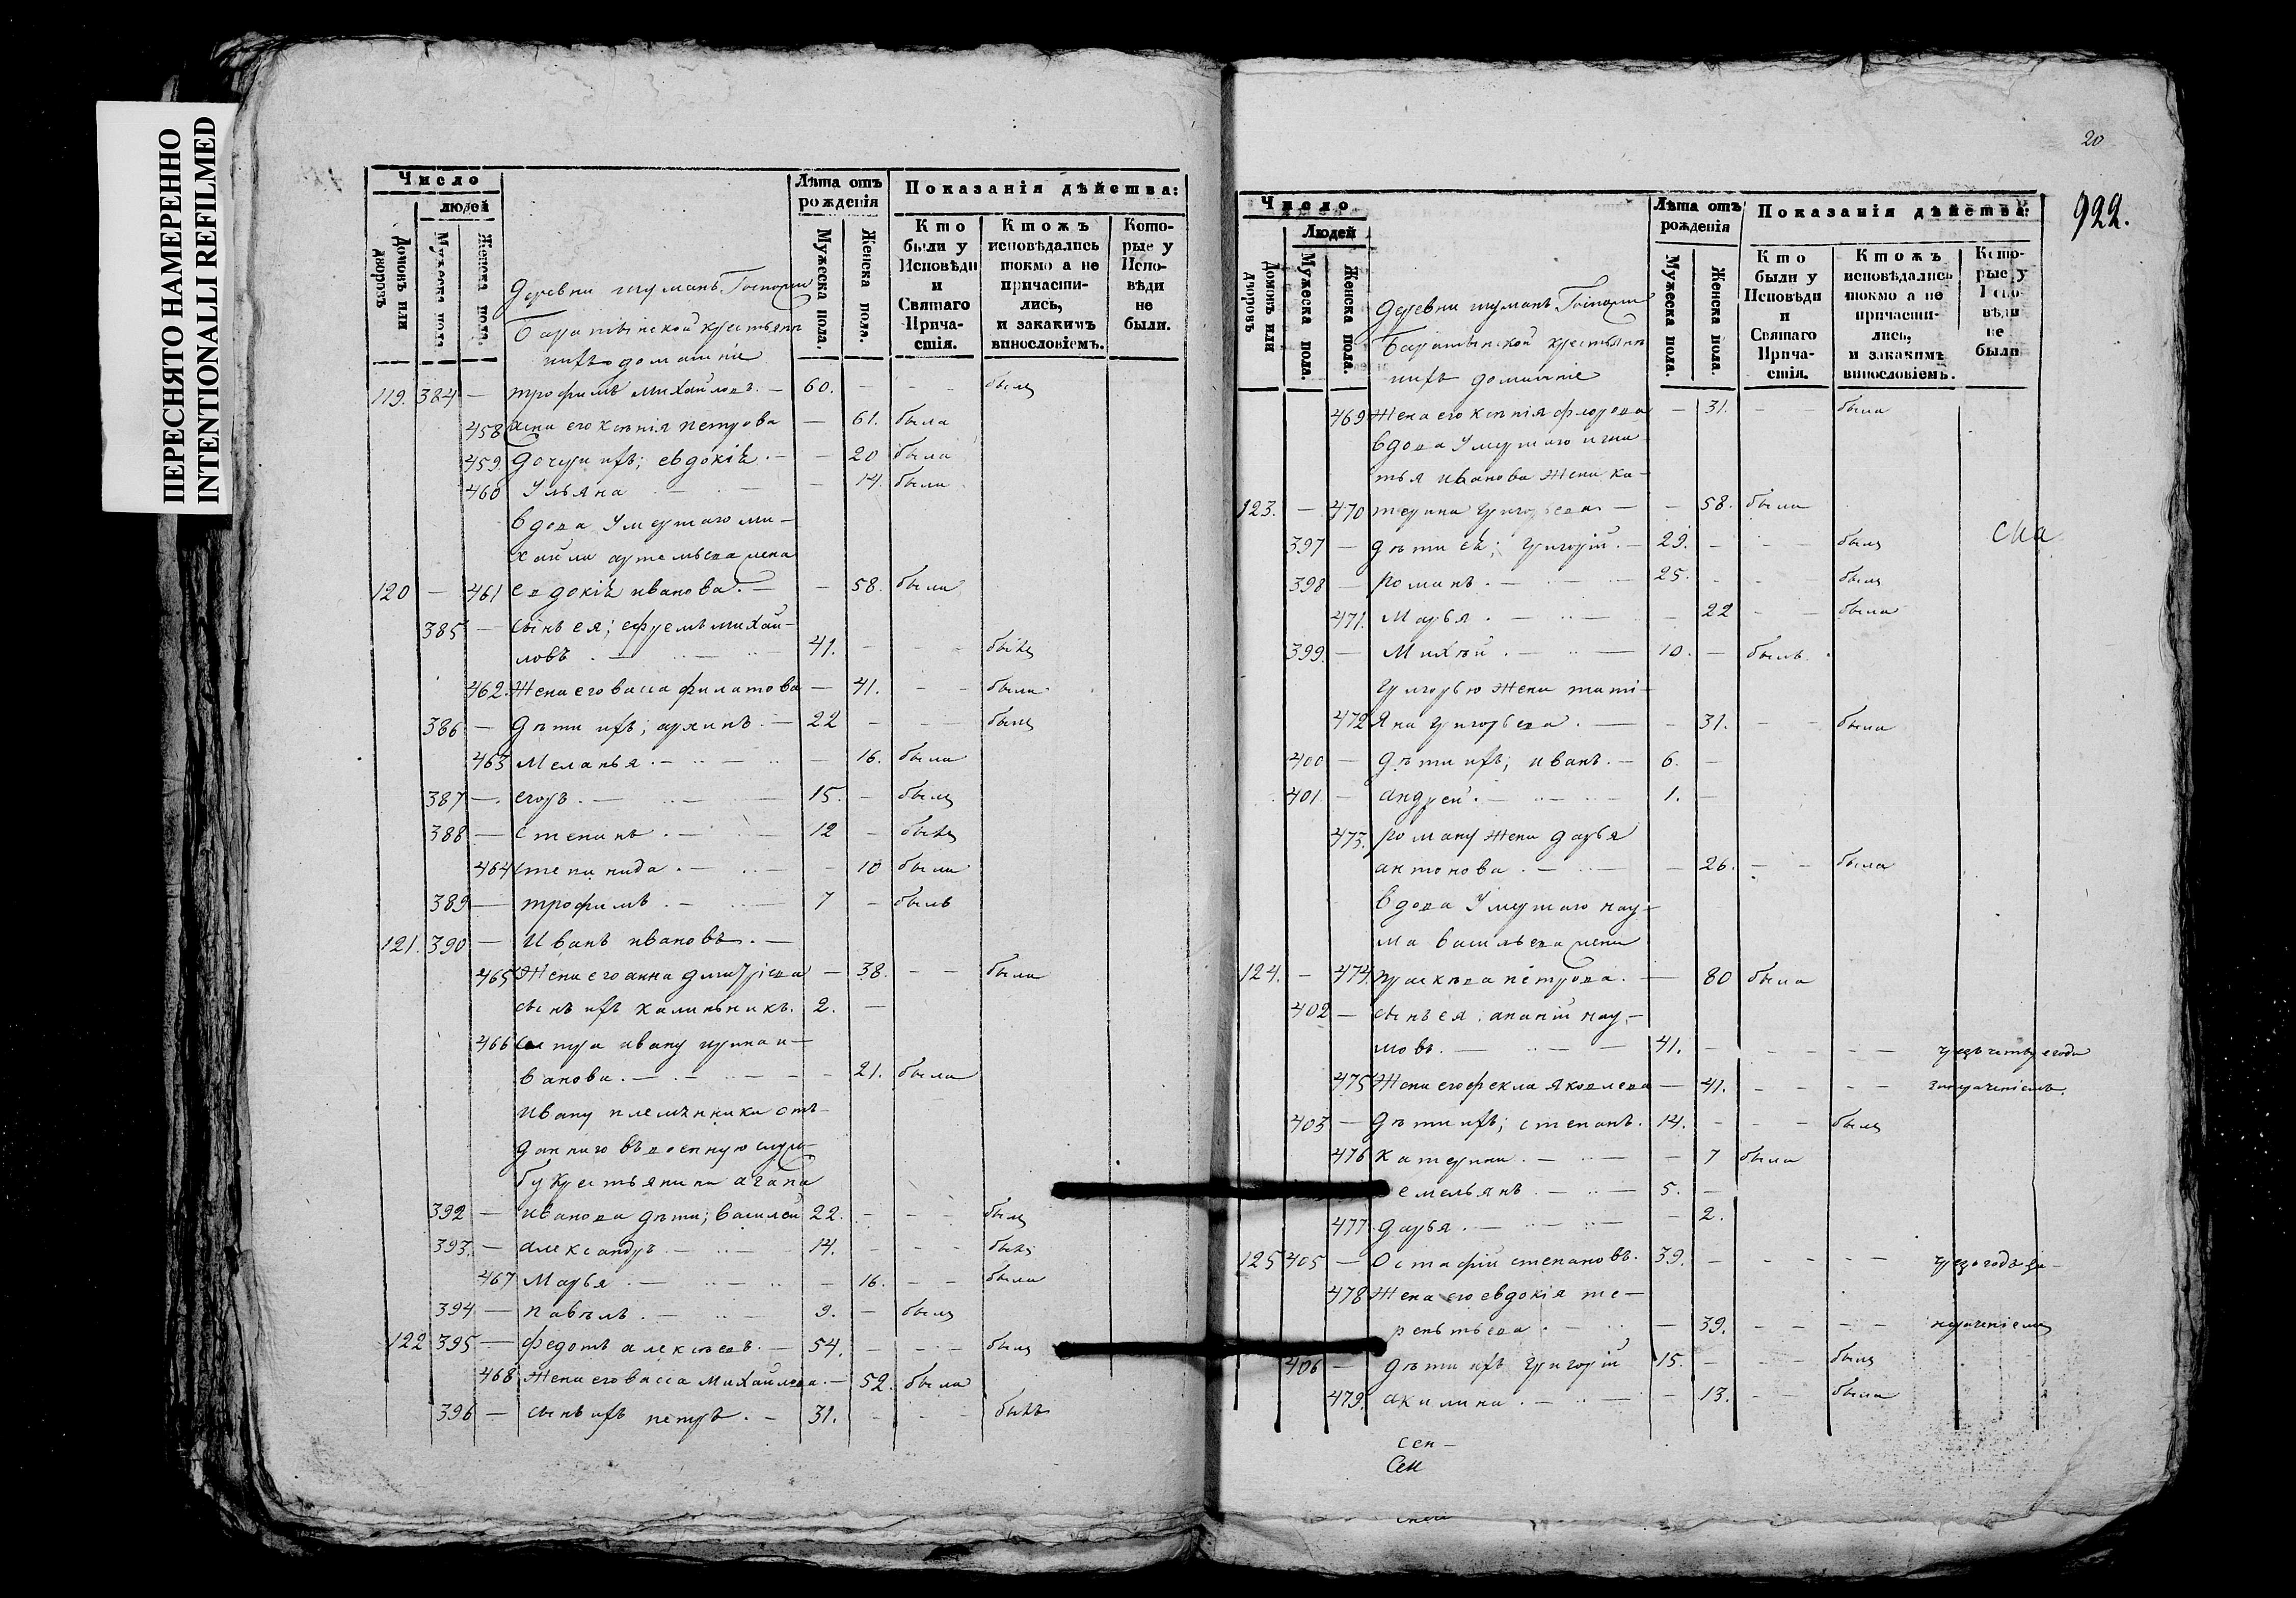 ПЕРЕСНЯТО НАМЕРЕННО
INTENTIONALLI REFILMED
Число
людей
Домовъ или дворовъ
Мужеска пола.
Женска пола.
Лѣта отъ рожденія
Мужеска пола.
Женска пола.
Показанія дѣйства:
Кто были у Исповѣди и Святаго Прича-стія.
Ктожъ исповѣдались токмо а не причасти-лись, и закакимъ винословіемъ.
Кото-рые у Испо-вѣди не были.
Деревни шуманъ Госпожи
крестьянъ
ихъ домашніе
119. 384 — трофимъ михайловъ. — 60. — — — былъ
458 жена его ксѣнія петрова — 61. была
459. Дочери ихъ; евдокіѣ. — — 20 была
460 Ульяна — 14. была
вдова Умершаго ми-
хайла артемьева жена
120 — 461 евдокіѣ иванова. — — 58. была
385 — сынъ ея; ефремъ михай-
ловъ . — 41. — — — былъ
462. Жена его васса филатова — 41. — — была
386 — Дѣти ихъ; архипъ. — 22 — — — былъ
463 Меланья . — 16. была
387 — егоръ. — 15. — былъ
388 — степанъ . — 12 — былъ
464 степанида . — — 10 была
389 — трофимъ . — 7 — былъ
121. 390 — Иванъ ивановъ. —
465 Жена его анна дмитріева — 38. — — была
сынъ ихъ калинникъ. 2. —
466 Сестра ивану ирина и-
ванова. — — 21. была
ивану племѣнника отъ-
даннаго въ военную служ-
бу крестьянина агапа
392 — иванова дѣти; василей 22. — — — былъ
393. — александръ — 14. — — — былъ
467 Марья . — — 16. — — была
394 — павелъ . — 9. — былъ
122 395 — федотъ алексѣевъ. — 54. — — — былъ
468 Жена его васса михайлова. — 52. была
396 — сынъ ихъ петръ . — 31. — — — былъ
20
922.
Число
Людей
Домовъ или дворовъ
Мужеска пола.
Женска пола.
Лѣта отъ рожденія
Мужеска пола.
Женска пола.
Показанія дѣйства:
Кто были у Исповѣди и Святаго Прича-стія.
Ктожъ исповѣдались токмо а не причасти-лись, и закакимъ винословіемъ.
Кото-рые у Испо-вѣди не были
Деревни шуманъ Госпожи
крестьянъ
ихъ домашніе
469 Жена его ксѣнія — 31. — — была
вдова Умершаго игна
тья иванова Жена ка-
123. — 470 терина григорьева — — 58. была
397 — Дѣти еѣ; григорій. — 29. — — — былъ
398 — романъ . — 25. — — былъ
471. Марья . — — 22 — — была
399. — Михѣй . — 10. — былъ.
григорью Жена тати-
472 Яна григорьева . — — 31. — — была
400 — Дѣти ихъ; иванъ. — 6. —
401 — андрей . — 1. —
473. роману Жена дарья
антонова . — — 26. — — была
вдова Умершаго нау-
ма васильева жена
124. — 474. прасковья петрова. — — 80 была
402 — сынъ ея ананій нау-
мовъ. — 41. — — — — —
475 Жена его фекла яковлева — 41. — — — —
403 — Дѣти ихъ; степанъ. 14. — — — былъ
476 катерина . — — 7 была
емельянъ . — 5. —
477. дарья . — — 2.
125 405 — Остафій степановъ. 39. — — — — —
478 Жена его евдокія те-
рентьева . — — 39. — — — —
406 — Дѣти ихъ григорій 15. — — — былъ
479. акилина . — — 13. — — была
сен-
Сем